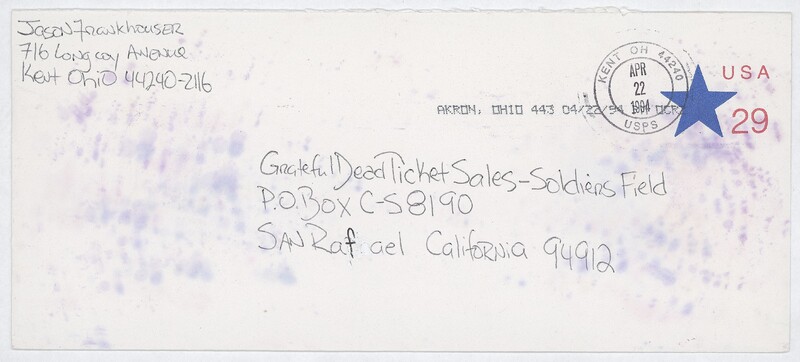 Jason Frankhouser
716 Longcoy Avenue
Kent Ohio 44240-2116
KENT OH 44240
APR
22
1994
USPS
USA
29
AKRON, OHIO 443 04/22/94
Grateful Dead Ticket Sales-Soldiers Field
P.O. Box C-S8190
San Rafael California 94912